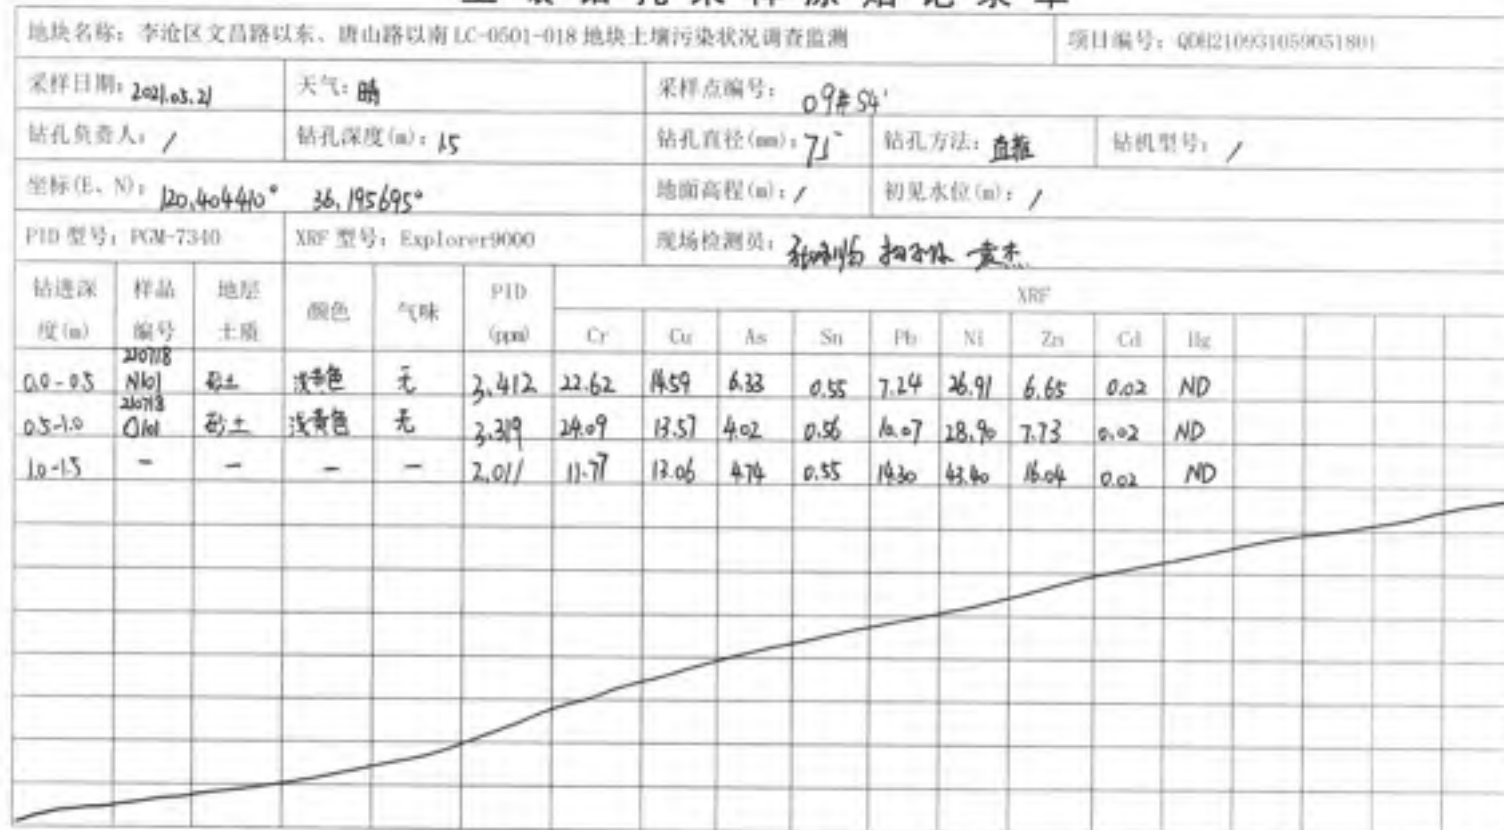 土壤钻孔采样原始记录单
地块名称：李沧区文昌路以东、唐山路以南LC-0501-018地块土壤污染状况调查监测 项目编号：QDH210931059051801
采样日期：2021.05.21 天气：晴 采样点编号：09#S4'
钻孔负责人：/ 钻孔深度(m)：1.5 钻孔直径(mm)：75 钻孔方法：直推 钻机型号：/
坐标(E、N)：120.404410° 36.195695° 地面高程(m)：/ 初见水位(m)：/
PID型号：PGM-7340 XRF型号：Explorer9000 现场检测员：
钻进深 样品 地层 颜色 气味 PID XRF
度(m) 编号 土质 (ppm) Cr Cu As Sn Pb Ni Zn Cd Hg
210718
0.0-0.5 N101 砂土 浅黄色 无 3.412 22.62 14.59 6.33 0.55 7.24 26.91 6.65 0.02 ND
210718
0.5-1.0 O101 砂土 浅黄色 无 3.319 24.09 13.57 4.02 0.56 10.07 28.90 7.73 0.02 ND
1.0-1.5 - - - - 2.011 11.77 13.06 4.74 0.55 14.30 43.40 16.04 0.02 ND